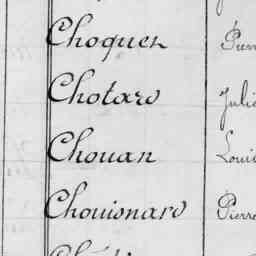 Choquen
Chotard Juli
Chouan Louis
Chouisnard Pierre